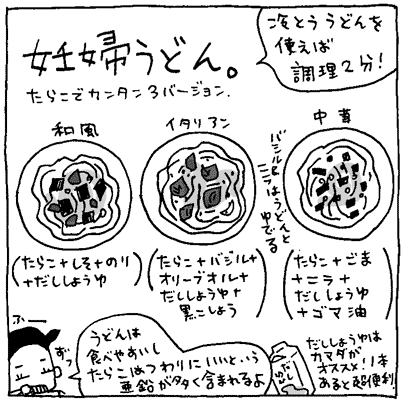 妊婦うどん。
たらこでカンタン3バージョン.
冷とううどんを
使えば
調理2分!
和風
イタリアン
中華
バジル&
ニラはうどんと
ゆでる
(たらこ+しそ+のり
+だししょうゆ)
(たらこ+バジル+
オリーブオイル+
だししょうゆ+
黒こしょう)
(たらこ+ごま
+ニラ+
だししょうゆ
+ゴマ油)
ふー
ずっ
うどんは
食べやすいし
たらこはつわりにいいという
亜鉛が多く含まれるよ
だししょうゆは
カマダが
オススメ!1本
あると超便利
だし